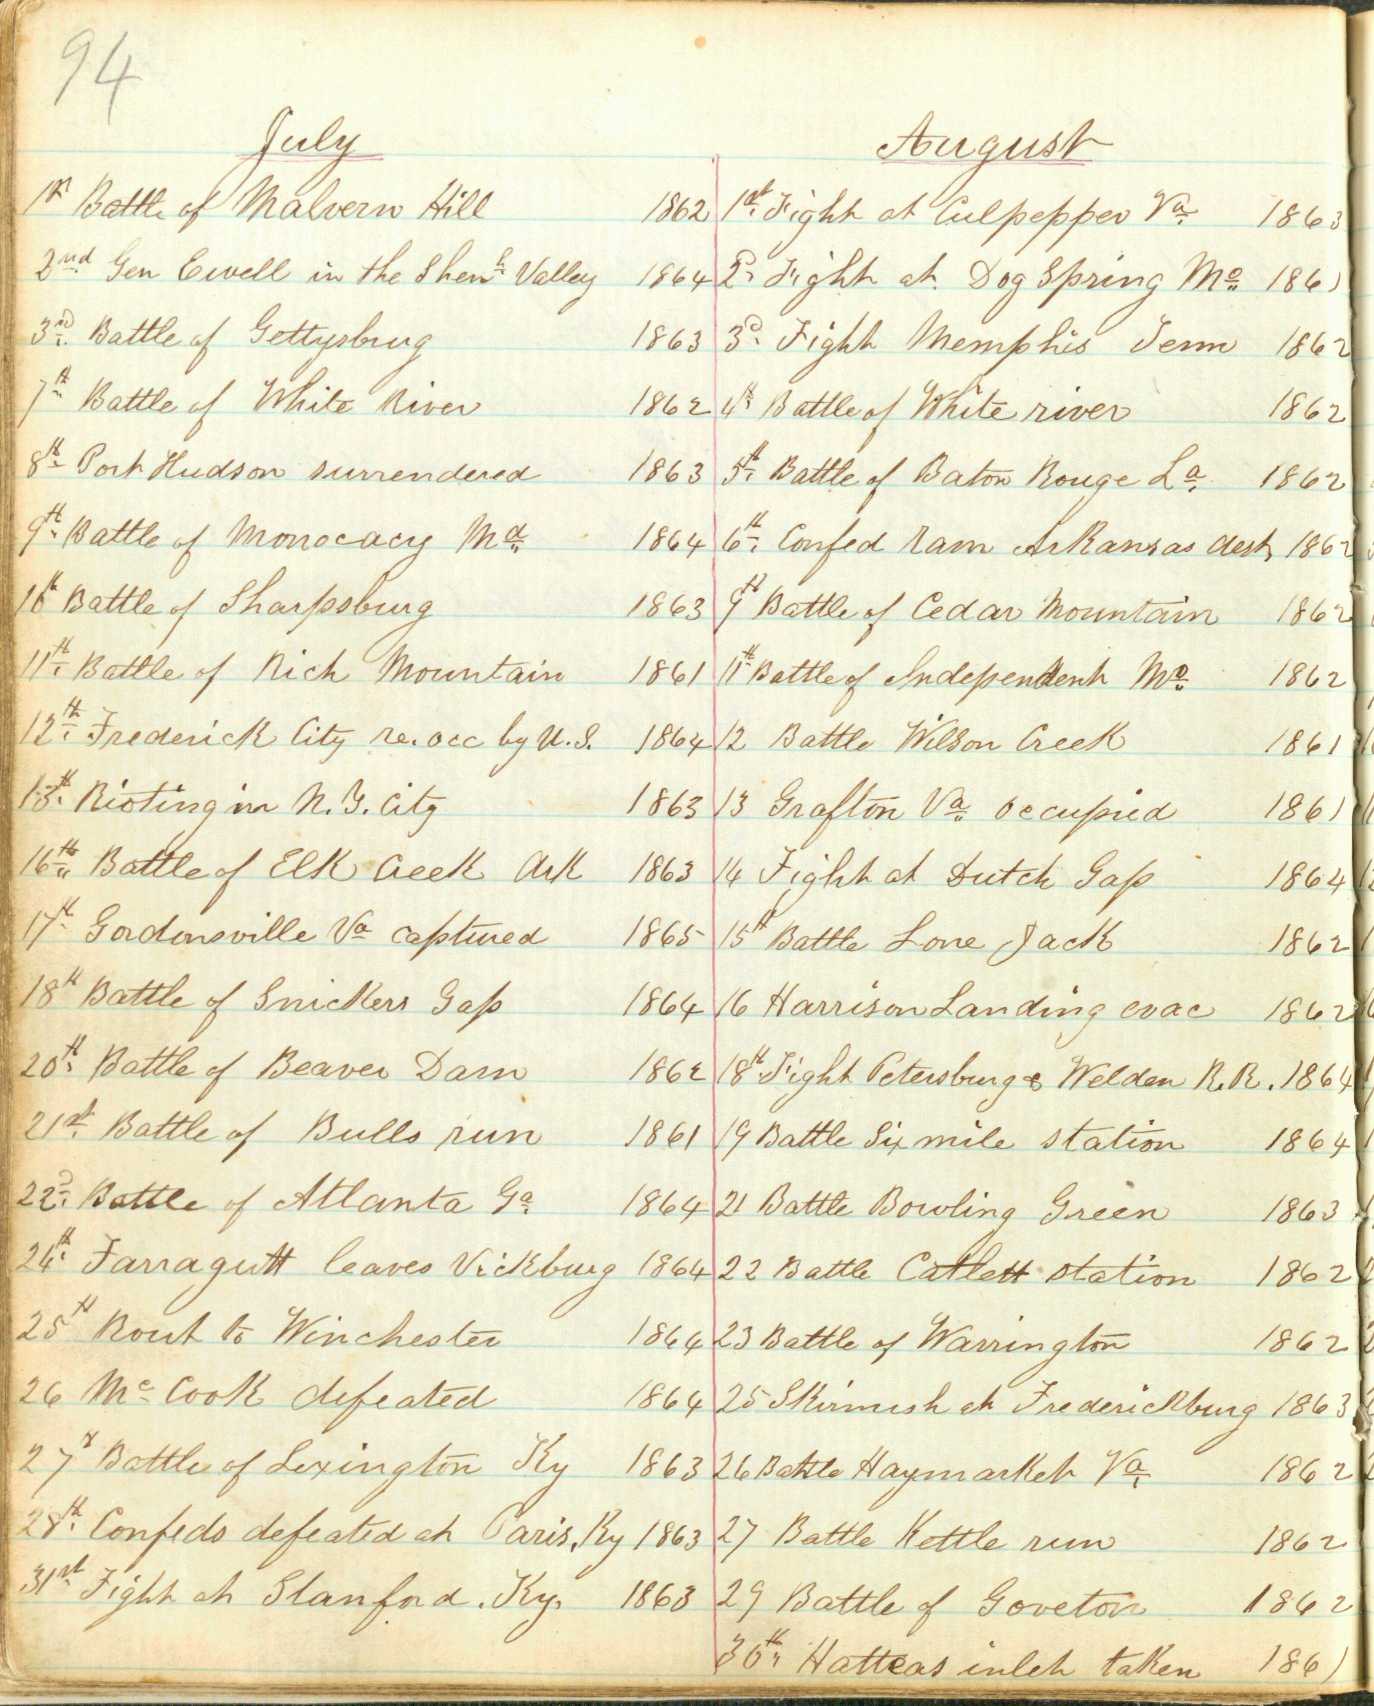 94
July
1st Battle of Malvern Hill 1862
2nd Gen Ewell in the Shenh Valley 1864
3rd Battle of Gettysburg 1863
7th Battle of White River 1862
8th Port Hudson surrendered 1863
9th Battle of Monocacy Md 1864
10th Battle of Sharpsburg 1863
11th Battle of Rich Mountain 1861
12th Frederick City re.occ by U.S. 1864
13th Rioting in N.Y. City 1863
16th Battle of Elk Creek Ark 1863
17th Gordonsville Va captured 1865
18th Battle of Snickers Gap 1864
20th Battle of Beaver Dam 1862
21st Battle of Bulls run 1861
22d Battle of Atlanta Ga 1864
24th Farragutt leaves Vickburg 1864
25th Rout to Winchester 1864
26 Mc Cook defeated 1864
27 Battle of Lexington Ky 1863
28th Confeds defeated at Paris, Ky 1863
31st Fight at Stanford. Ky. 1863
August
1st Fight at Culpepper Va 1863
2d Fight at Dog Spring Mo 1861
3d Fight Memphis Tenn 1862
4th Battle of White river 1862
5th Battle of Baton Rouge La 1862
6th Confed ram Arkansas dest 1862
9th Battle of Cedar Mountain 1862
11th Battle of Independent Mo 1862
12 Battle Wilson Creek 1861
13 Grafton Va occupied 1861
14 Fight at Dutch Gap 1864
15th Battle Lone Jack 1862
16 Harrison Landing evac 1862
18th Fight Petersburg & Welden R.R. 1864
19 Battle Six mile station 1864
21 Battle Bowling Green 1863
22 Battle Catlett station 1862
23 Battle of Warrington 1862
25 Skirmish at Frederickburg 1863
26 Battle Haymarket Va 1862
27 Battle Kettle run 1862
29 Battle of Goveton 1862
30th Hatteas inlet taken 1861